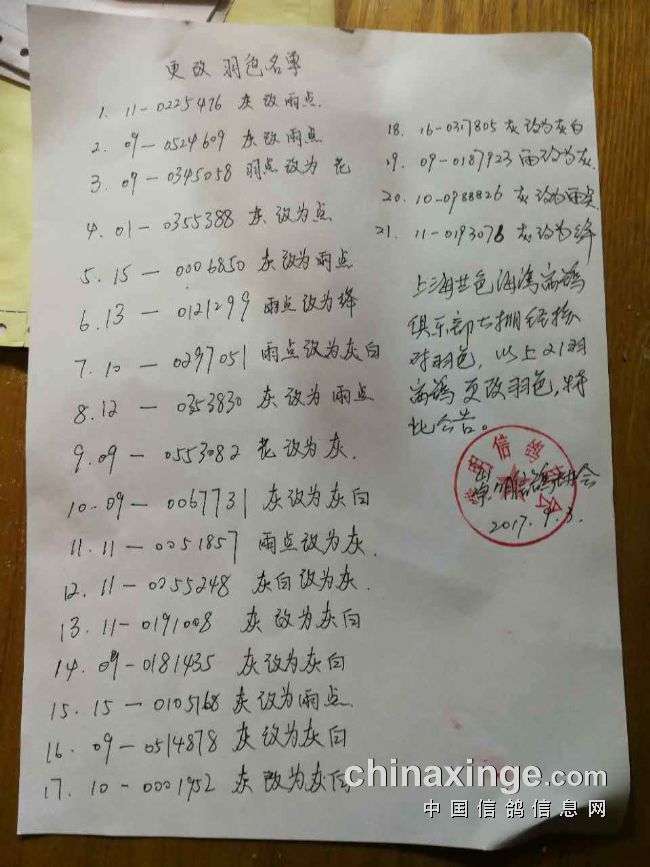 更改羽色名单
1. 11-0225476 灰改雨点.
2. 09-0524609 灰改雨点
3. 09-0345058 羽点改为 花
4. 01-0355388 灰改为点
5. 15-0006850 灰改为雨点
6. 13-0121299 雨点改为绛
7. 10-0297051 雨点改为灰白
8. 12-0353830 灰改为雨点
9. 09-0553082 花改为灰.
10. 09-0067731 灰改为灰白
11. 11-0051857 雨点改为灰.
12. 11-0255248 灰白改为灰.
13. 11-0191008 灰改为灰白
14. 09-0181435 灰改为灰白
15. 15-0105768 灰改为雨点.
16. 09-0514878 灰改为灰白
17. 10-0001952 灰改为灰白
18. 16-0317805 灰改为灰白
19. 09-0187923 雨改为灰.
20. 10-0988826 灰改为雨点.
21. 11-0193076 灰改为绛
上海 色海湾赛鸽
俱乐部大棚经核
对羽色，以上21羽
赛鸽更改羽色，特
此公告。
崇明信鸽协会
2017.9.3.
chinaxinge.com
中国信鸽信息网